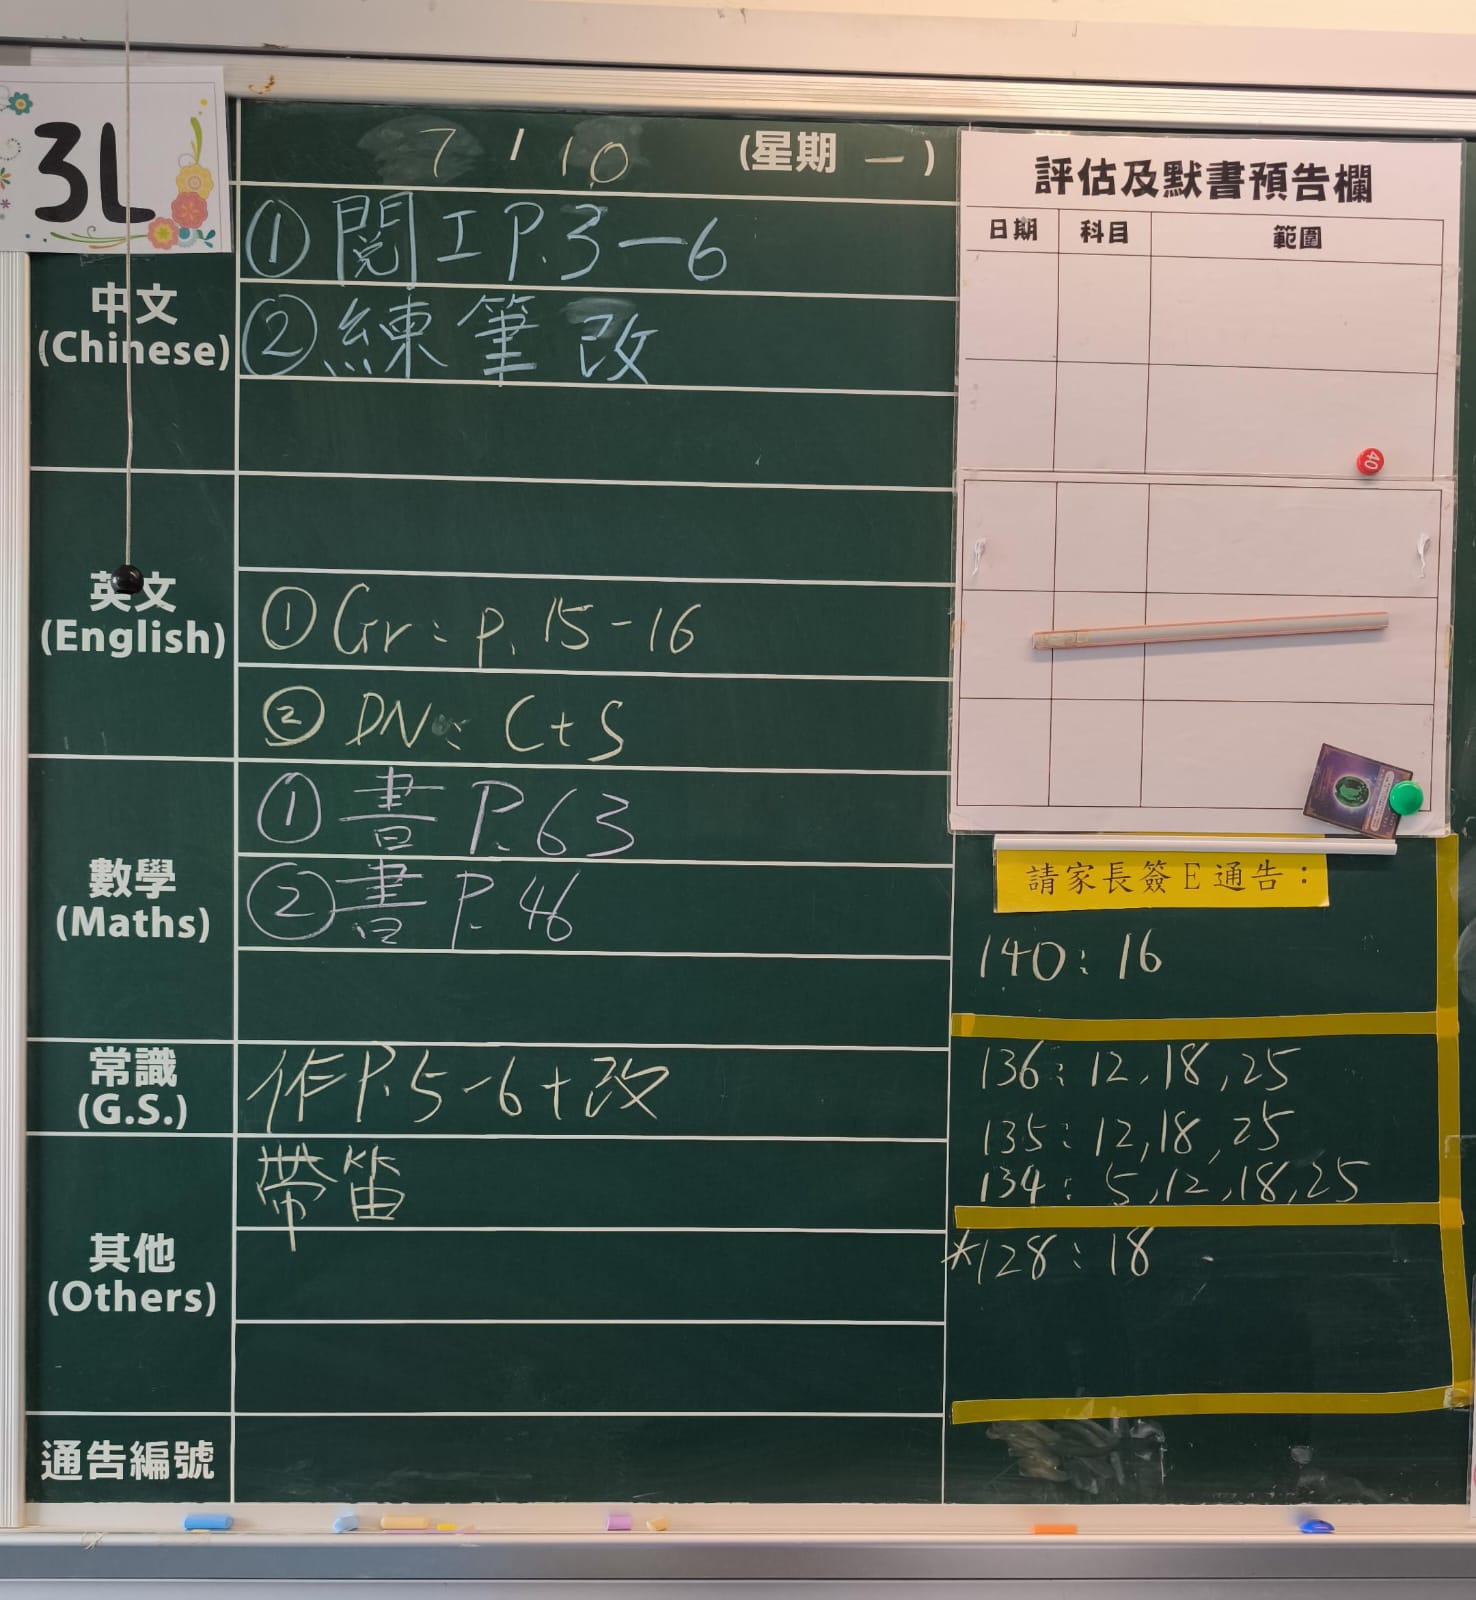 3L
7 / 10 (星期 一 )
中文
(Chinese)
① 閱工 P.3-6
② 練筆改
英文
(English)
① Gr: p. 15-16
② DN: C+S
數學
(Maths)
① 書 P.63
② 書 P.46
常識
(G.S.)
作 P.5-6+改
其他
(Others)
帶笛
通告編號
評估及默書預告欄
日期 科目 範圍
40
請家長簽E通告：
140: 16
136: 12, 18, 25
135: 12, 18, 25
134: 5, 12, 18, 25
*128: 18